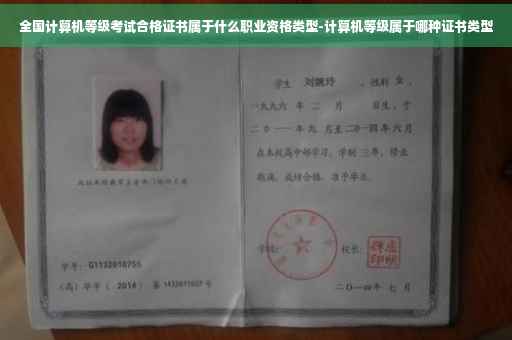 全国计算机等级考试合格证书属于什么职业资格类型-计算机等级属于哪种证书类型
学生 刘婉玲 ,性别 女 ,
一九九六 年 二 月 日生,于
二0一一年 九 月至二0一四年 六 月
在本校高中部学习,学制 三年,修业
期满,成绩合格,准予毕业。
学号: G1132010755
学校:
校长:
(高)毕字( 2014 )第 1432011027 号
二〇一四年 七 月